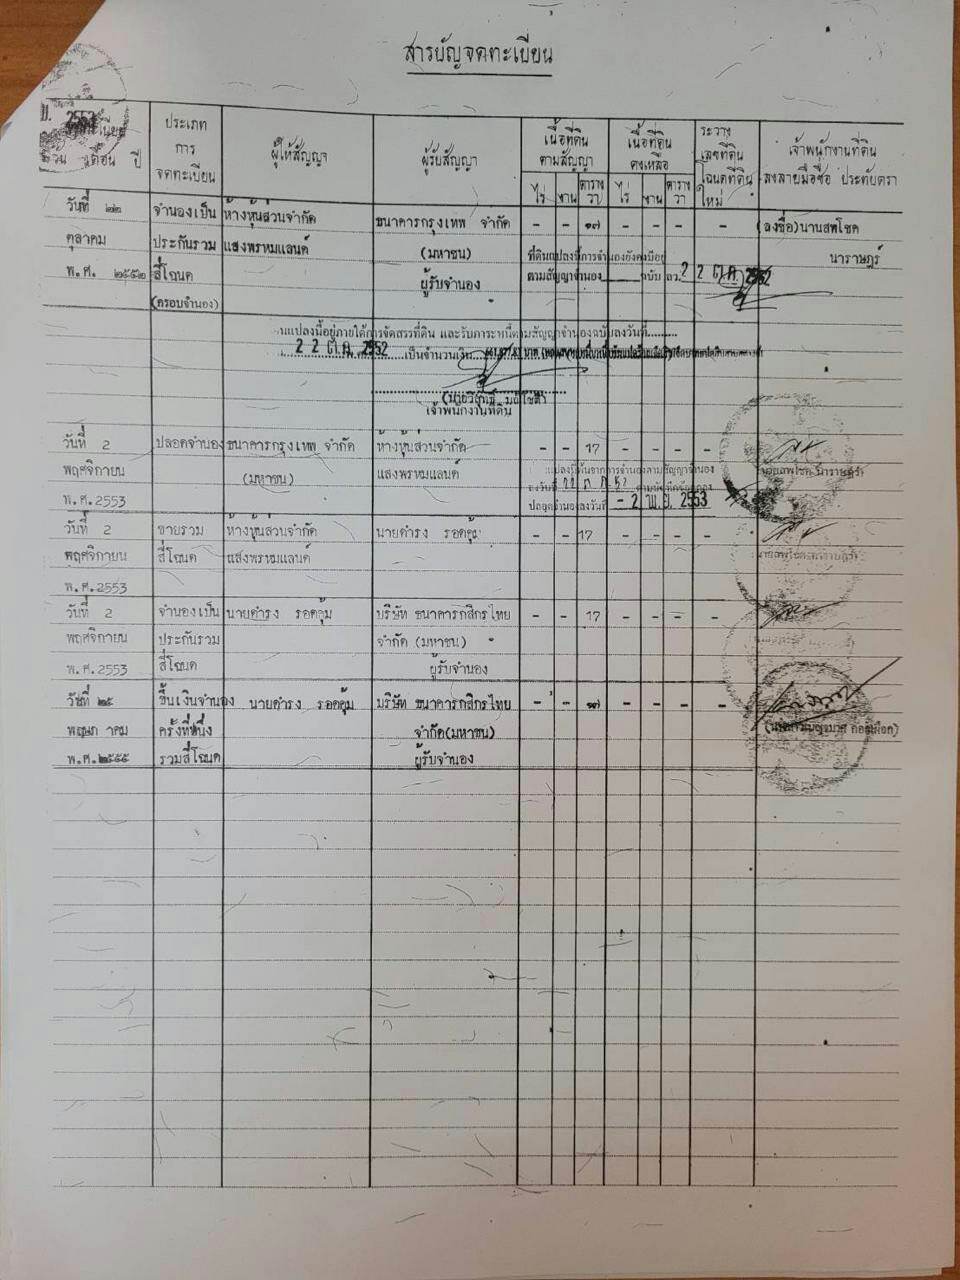 สารบัญจดทะเบียน
2553
เดือน ปี
ประเภท
การ
จดทะเบียน
ผู้ให้สัญญา
ผู้รับสัญญา
เนื้อที่ดิน
ตามสัญญา
ไร่ งาน ตาราง
วา
เนื้อที่ดิน
คงเหลือ
ไร่ งาน ตาราง
วา
ระวาง
เลขที่ดิน
โฉนดที่ดิน
ใหม่
เจ้าพนักงานที่ดิน
ลงลายมือชื่อ ประทับตรา
วันที่ ๒๒ จำนองเป็น ห้างหุ้นส่วนจำกัด ธนาคารกรุงเทพ จำกัด - - ๑๗ - - - - (ลงชื่อ)นานสพโชค
ตุลาคม ประกันรวม แสงพรหมแลนด์ (มหาชน) ที่ดินแปลงนี้การจำนองยังคงมีอยู่ นาราษฎร์
พ.ศ. ๒๕๕๒ สี่โฉนด ผู้รับจำนอง ตามสัญญาจำนอง ฉบับ ลว. 2 2 ต.ค. 2552
(ครอบจำนอง)
แปลงนี้อยู่ภายใต้การจัดสรรที่ดิน และรับภาระหนี้ตามสัญญาจำนองฉบับลงวันที่.........
2 2 ต.ค. 2552 เป็นจำนวนเงิน
เจ้าพนักงานที่ดิน
วันที่ 2 ปลอดจำนอง ธนาคารกรุงเทพ จำกัด ห้างหุ้นส่วนจำกัด - - 17 - - - -
พฤศจิกายน (มหาชน) แสงพรหมแลนด์
พ.ศ.2553 ปลอดจำนองลงวันที่ - 2 พ.ย. 2553
วันที่ 2 ขายรวม ห้างหุ้นส่วนจำกัด นายดำรง รอดคุ้ม - - 17 - - - -
พฤศจิกายน สี่โฉนด แสงพรหมแลนด์
พ.ศ.2553
วันที่ 2 จำนองเป็น นายดำรง รอดคุ้ม บริษัท ธนาคารกสิกรไทย - - 17 - - - -
พฤศจิกายน ประกันรวม จำกัด (มหาชน)
พ.ศ.2553 สี่โฉนด ผู้รับจำนอง
วันที่ ๒๕ ขึ้นเงินจำนอง นายดำรง รอดคุ้ม บริษัท ธนาคารกสิกรไทย - - ๑๗ - - - -
พฤษภาคม ครั้งที่หนึ่ง จำกัด(มหาชน)
พ.ศ.๒๕๕๕ รวมสี่โฉนด ผู้รับจำนอง